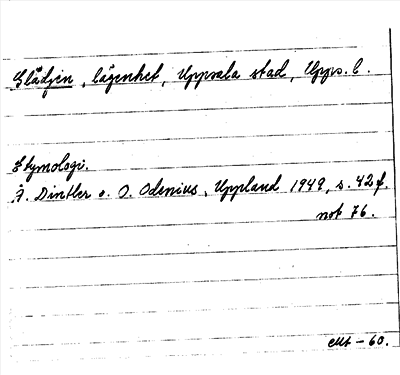 Glädjen, lägenhet, Uppsala stad, Upps. l.
Etymologi.
Å. Dintler o. O. Odenius, Uppland 1949, s. 42 f.
not 76.
-60.